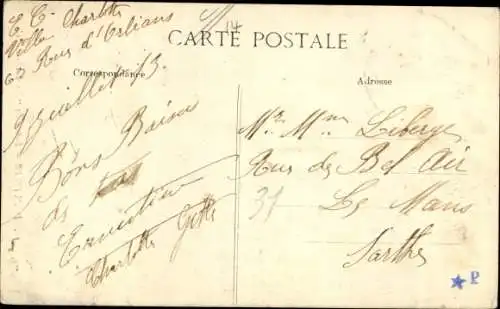 E C Charlotte
Villa
62 Rue d'Orléans
14
CARTE POSTALE
Correspondance
Adresse
Juillet 13
Bons Baisers
de
Ernestine
Charlotte
Mr Mme Liberge
Rue de Bel Air
31
Le Mans
Sarthe
P